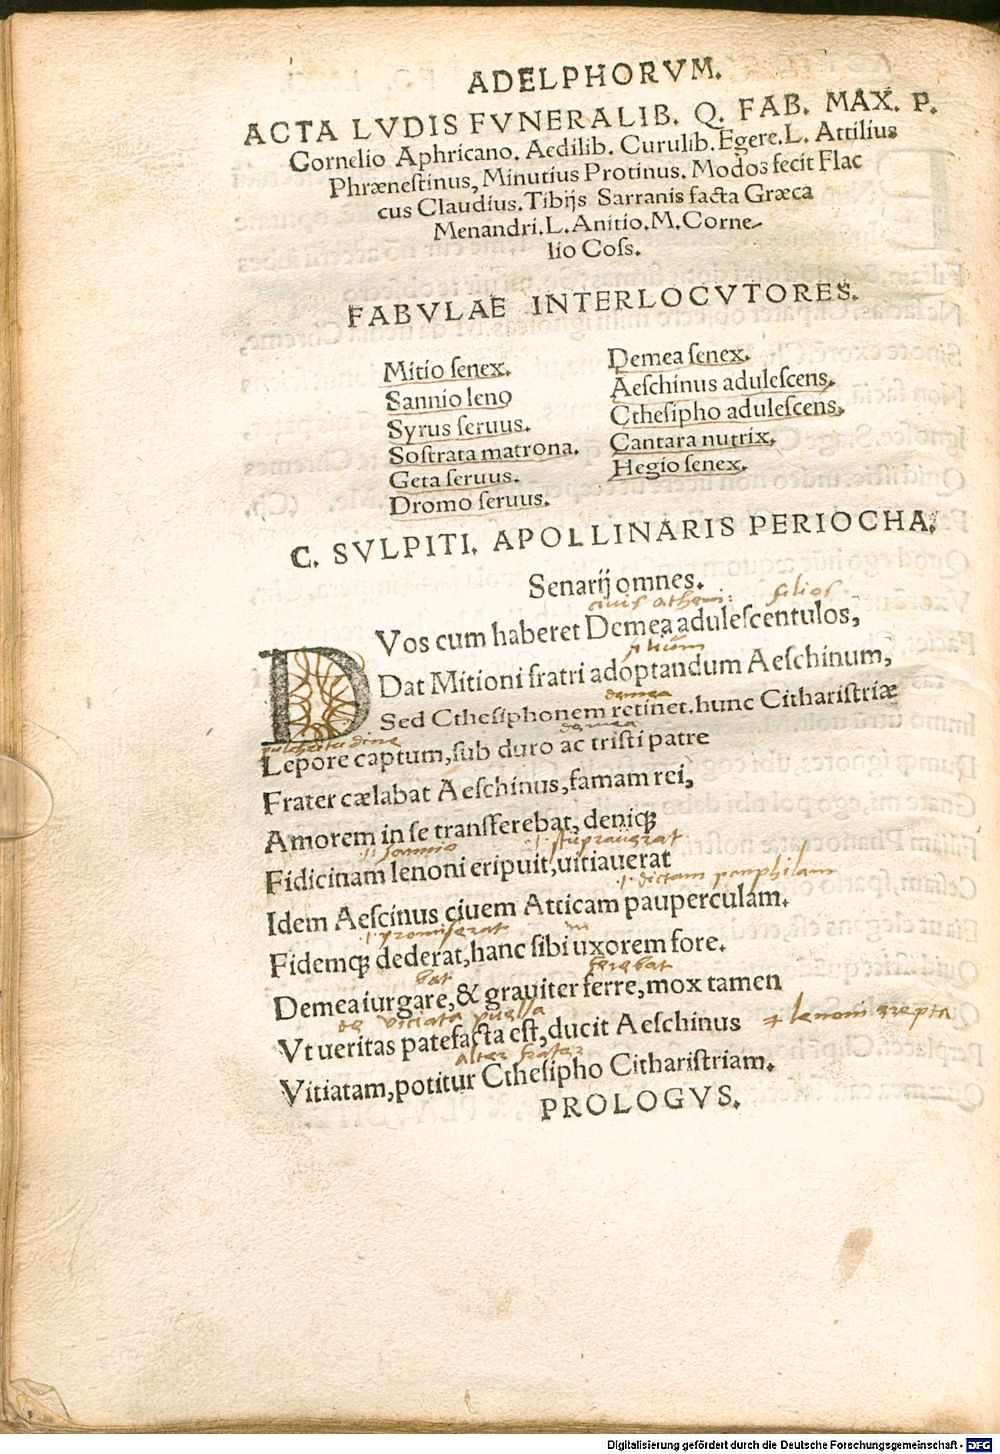 ADELPHORVM.
ACTA LVDIS FVNERALIB. Q. FAB. MAX. P.
Cornelio Aphricano. Aedilib. Curulib. Egere. L. Attilius
Phrænestinus, Minutius Protinus. Modos fecit Flac
cus Claudius. Tibijs Sarranis facta Græca
Menandri. L. Anitio. M. Corne-
lio Coss.
FABVLAE INTERLOCVTORES.
Mitio senex.
Sannio leno
Syrus seruus.
Sostrata matrona.
Geta seruus.
Dromo seruus.
Demea senex.
Aeschinus adulescens.
Cthesipho adulescens.
Cantara nutrix.
Hegio senex.
C. SVLPITI. APOLLINARIS PERIOCHA.
Senarij omnes.
ciuis atheni: filios
DVos cum haberet Demea adulescentulos,
filium
Dat Mitioni fratri adoptandum Aeschinum,
demea
Sed Cthesiphonem retinet. hunc Citharistriæ
pulchritudine demea
Lepore captum, sub duro ac tristi patre
Frater cælabat Aeschinus, famam rei,
Amorem in se transferebat, deniqꝫ
sannio stuprauerat
Fidicinam lenoni eripuit, uitiauerat
dictam pamphilam
Idem Aescinus ciuem Atticam pauperculam.
promiserat in
Fidemqꝫ dederat, hanc sibi uxorem fore.
bat ferebat
Demea iurgare, & grauiter ferre, mox tamen
de vitiata puella
Vt ueritas patefacta est, ducit Aeschinus + lenoni erepta
alter frater
Vitiatam, potitur Cthesipho Citharistriam.
PROLOGVS.
Digitalisierung gefördert durch die Deutsche Forschungsgemeinschaft - DFG